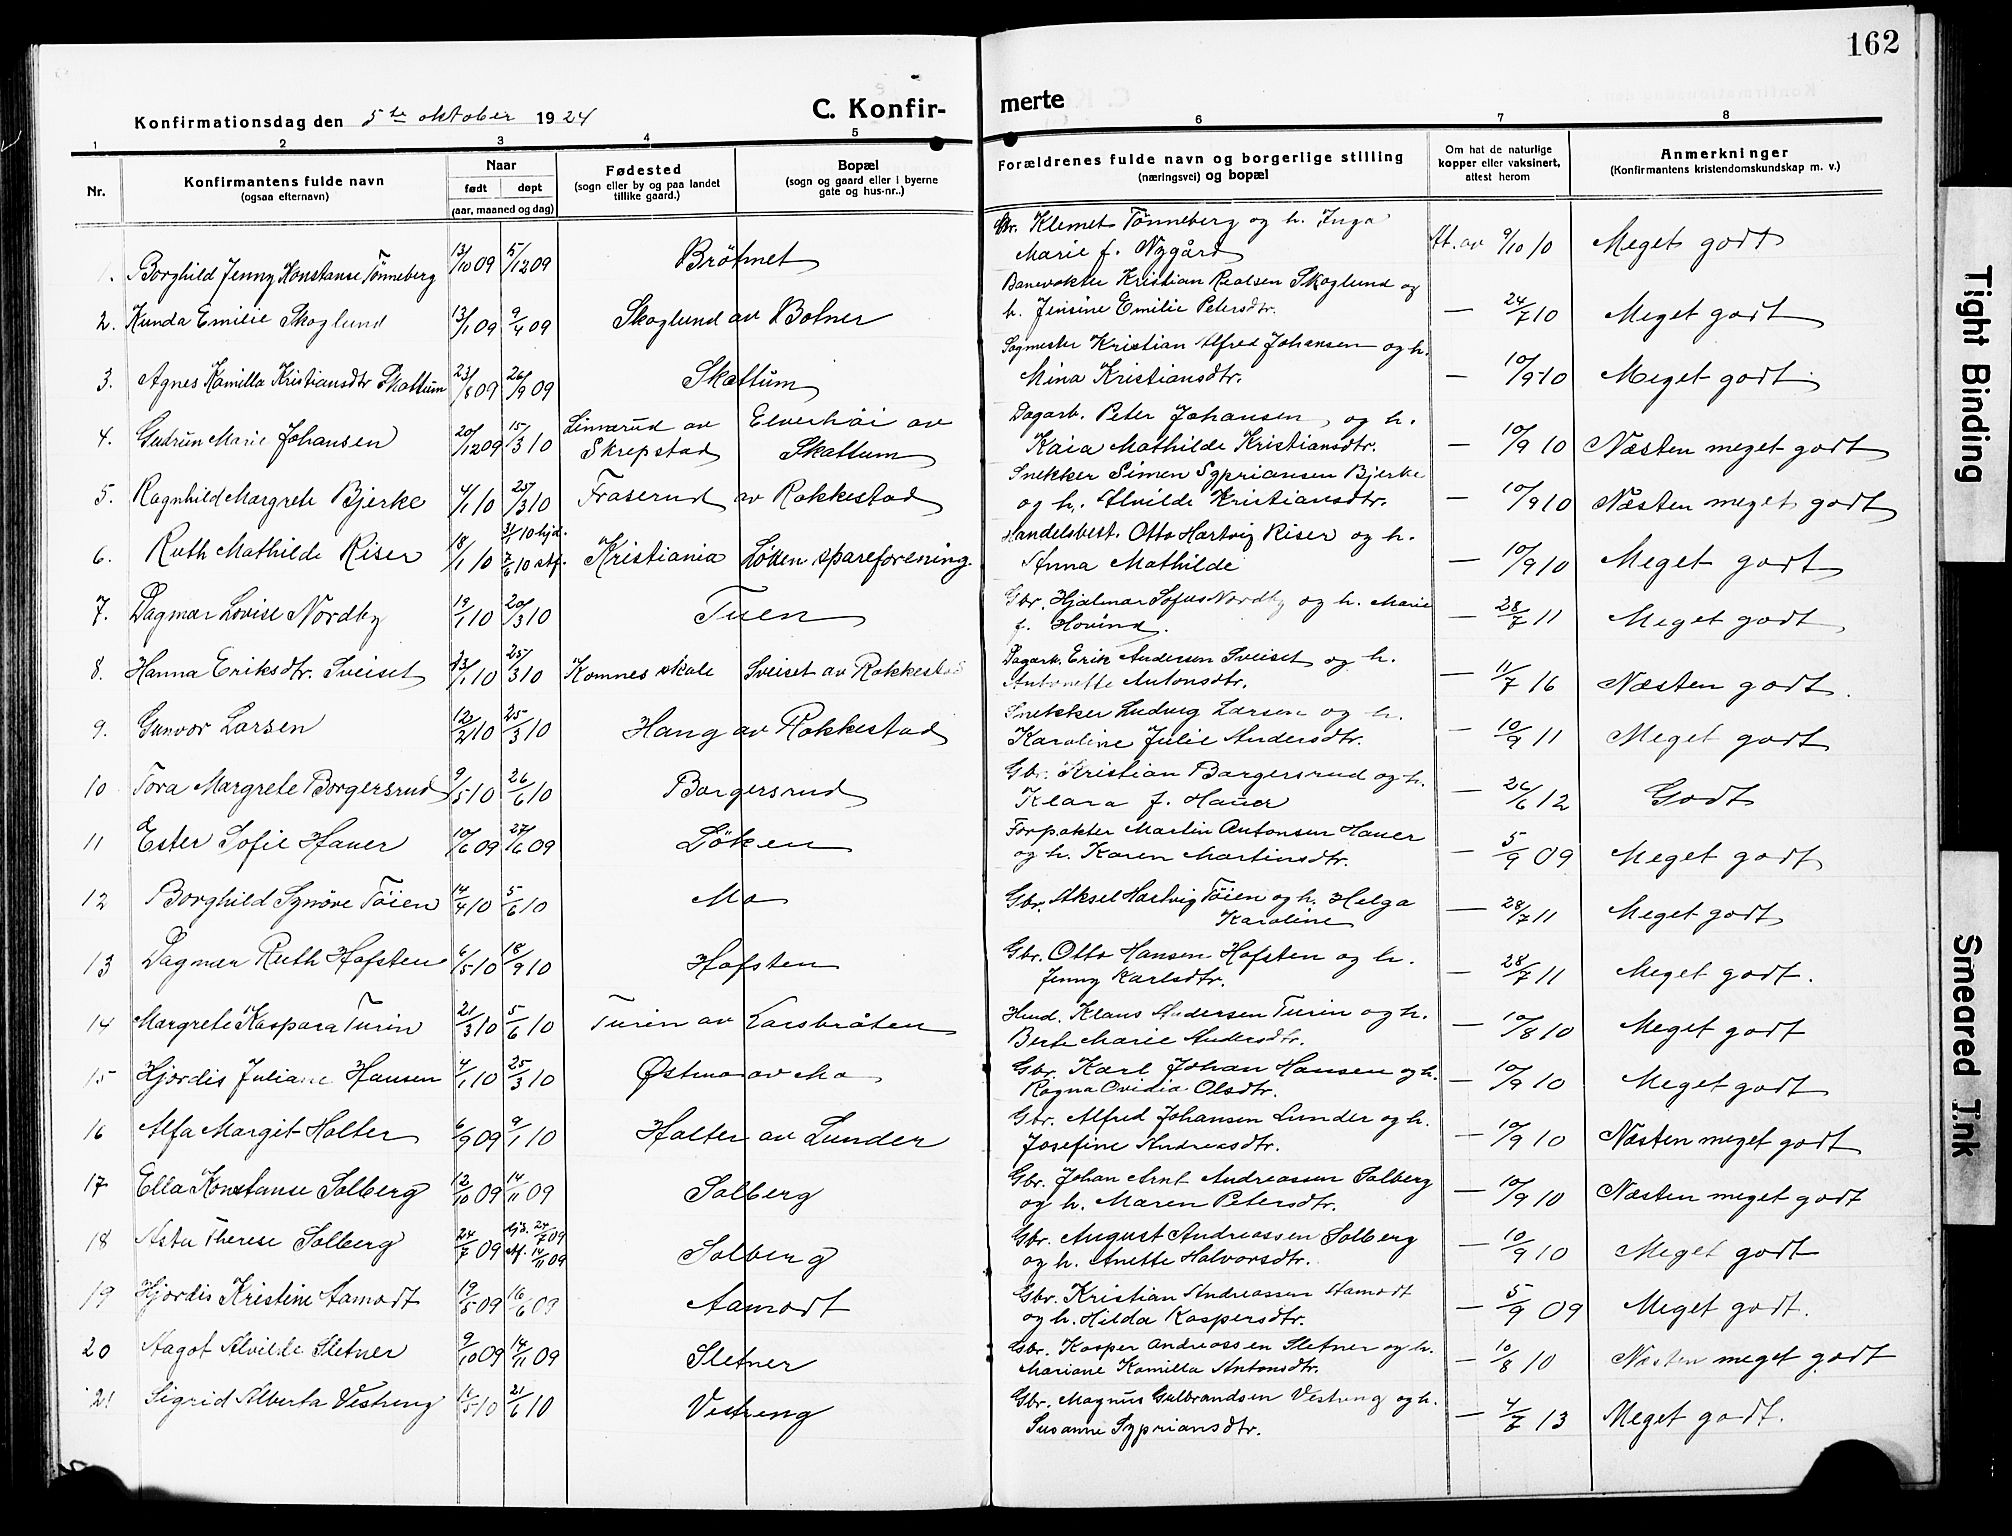 162
Konfirmationsdag den 5te oktober 1924
C. Konfir-
merte
1 2 3 4 5 6 7 8
Nr.
Konfirmantens fulde navn
(ogsaa efternavn)
Naar
født døpt
(aar, maaned og dag)
Fødested
(sogn eller by og paa landet
tillike gaard.)
Bopæl
(sogn og gaard eller i byerne
gate og hus-nr..)
Forældrenes fulde navn og borgerlige stilling
(næringsvei) og bopæl
Om hat de naturlige
kopper eller vaksinert,
attest herom
Anmerkninger
(Konfirmantens kristendomskundskap m. v.)
1. Borghild Jenny Konstanse Tønneberg 13/10 09 5/12 09 Bröhnet
Gbr. Klemet Tønneberg og h. Inga
Marie f. Nygård At. av 9/10 10 Meget godt
2. Kunda Emilie Skoglund 13/1 09 9/4 09 Skoglund av Bolner
Banevokter Kristian Realsen Skoglund og
h. Jensine Emilie Petersdtr. — 24/7 10 Meget godt
3. Agnes Kamilla Kristiansdtr Skattum 23/8 09 26/9 09 Skattum
Sagmester Kristian Alfred Johansen og h.
Mina Kristiansdtr. — 10/9 10 Meget godt.
4. Gudrun Marie Johansen 20/12 09 15/3 10 Linnerud av Skrepstad Elverhöi av Skattum
Dagarb. Peter Johansen, og h.
Kaia Mathilde Kristiansdtr. — 10/9 10 Næsten meget godt
5. Ragnhild Margrete Bjerke 4/1 10 25/3 10 Fraserud av Rokkestad
Snekker Simen Sypriansen Bjerke
og h. Alvilde Kristiansdtr. — 10/9 10 Næsten meget godt
6. Ruth Mathilde Riser 18/1 10 31/1 10 hjd. 7/6 10 stf. Kristiania Løken spareforening
Handelsbest. Otto Hartvig Riser og h.
Anna Mathilde — 10/9 10 Meget godt
7. Dagmar Lovise Nordby 19/1 10 20/3 10 Tuen
Gbr. Hjalmar Sofus Nordby og h. Marie
f. Hovind. — 28/7 11 Meget godt
8. Hanna Eriksdtr. Sveiset 23/1 10 25/3 10 Komnes skole Sveiset av Rokkestad
Dagarb. Erik Andersen Sveiset og h.
Antonette Antonsdtr. — 11/7 16 Næsten godt.
9. Gunvor Larsen 12/2 10 25/3 10 Haug av Rokkestad
Snekker Ludvig Larsen og h.
Karoline Julie Andersdtr. — 10/9 11 Meget godt
10 Tora Margrete Borgersrud 9/5 10 26/6 10 Borgersrud
Gbr. Kristian Borgersrud og h.
Klara f. Hauer — 26/6 12 Godt
11 Ester Sofie Hauer 10/6 09 27/6 09 Löken
Forpakter Martin Antonsen Hauer
og h. Karen Martinsdtr. — 5/9 09 Meget godt
12 Borghild Synöve Töien 14/4 10 5/6 10 Mo
Gbr. Aksel Hartvig Töien og h. Helga
Karoline — 28/7 11 Meget godt
13 Dagmar Ruth Hafsten 6/5 10 18/9 10 Hafsten
Gbr. Otto Hansen Hafsten og h.
Jenny Karlsdtr. — 28/7 11 Meget godt.
14 Margrete Kaspara Turin 21/3 10 5/6 10 Turin av Larsbråten
Husd. Klaus Andersen Turin og h.
Berte Marie Andersdtr. — 10/8 10 Meget godt
15 Hjørdis Juliane Hansen 4/1 10 25/3 10 Østmo av Mo
Gbr. Karl Johan Hansen og h.
Ragna Ovidia Olsdtr. — 10/9 10 Meget godt
16 Alfa Margit Holter 6/9 09 9/1 10 Holter av Lunder
Gbr. Alfred Johansen Lunder og h.
Josefine Andreasdtr. — 10/9 10 Næsten meget godt
17 Ella Konstanse Solberg 12/10 09 14/11 09 Solberg
Gbr. Johan Arnt Andreassen Solberg
og h. Maren Petersdtr. — 10/9 10 Næsten meget godt
18 Asta Therese Solberg 24/7 09 hjd. 24/7 09 stf. 14/11 09 Solberg
Gbr. August Andreassen Solberg
og h. Anette Halvorsdtr. — 10/9 10 Meget godt
19 Hjørdis Kristine Aamodt 19/5 09 16/6 09 Aamodt
Gbr. Kristian Andreassen Aamodt
og h. Hilda Kaspersdtr. — 5/9 09 Meget godt.
20 Aagot Alvilde Sletner 9/10 09 14/11 09 Sletner
Gbr. Kasper Andreassen Sletner og h.
Mariane Kamilla Antonsdtr. — 10/8 10 Næsten meget godt
21 Sigrid Alberta Vestreng 14/5 10 21/6 10 Vestreng
Gbr. Magnus Gulbrandsen Vestreng og h.
Susanne Sypriansdtr. — 4/7 13 Meget godt.
Tight Binding
Smeared Ink